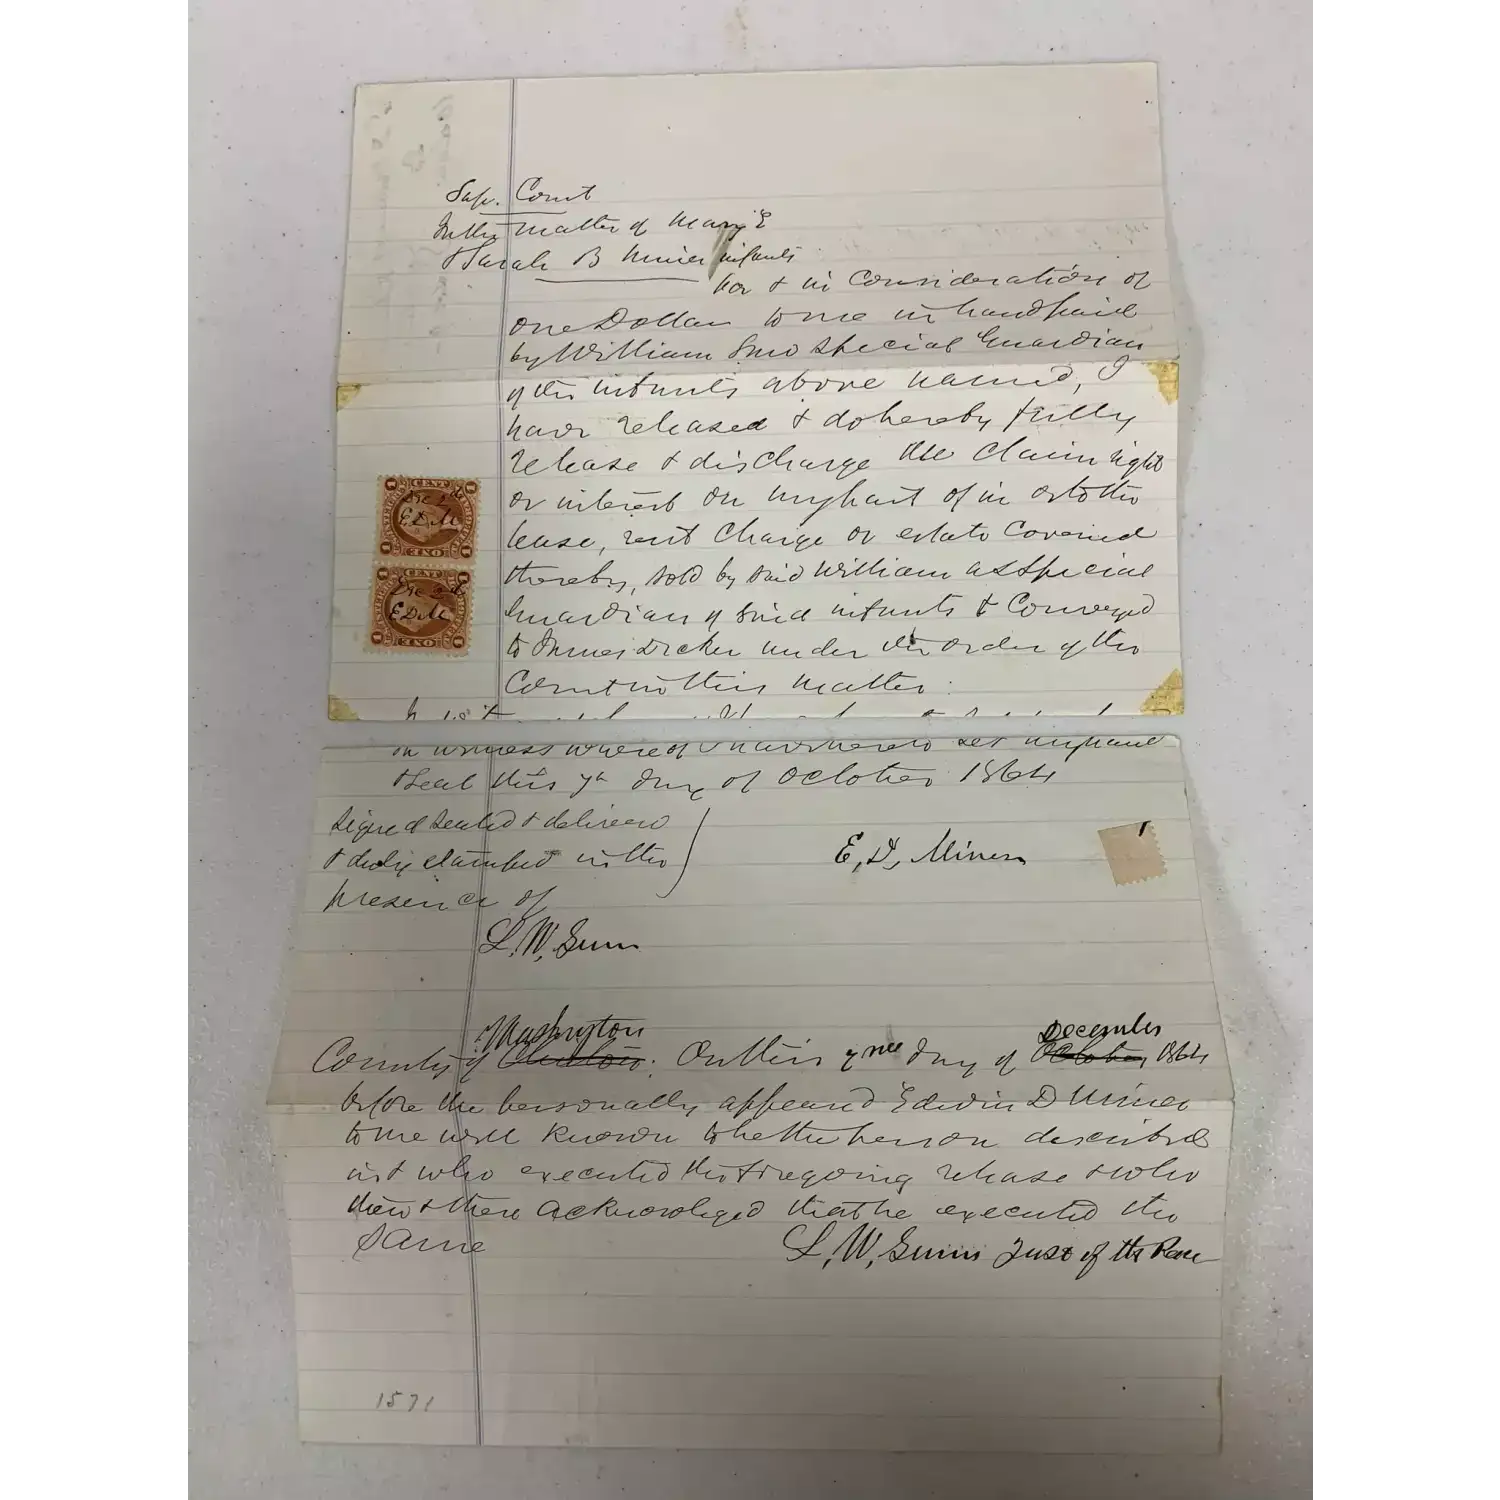 Sup. Court
In the matter of Mary E
& Sarah B Miner infants
For & in Consideration of
One Dollar to me in hand paid
by William                special Guardian
of the infants above named, I
have released & do hereby fully
release & discharge the Claim right
or interest on my part of in or to the
lease, rent Charge or estate Covered
thereby, sold by said William as special
Guardian of said infants & Conveyed
to James Decker under the order of the
Court in this matter.
In witness whereof I have hereto set my hand
& seal this 7th day of October 1864
Signed sealed & delivered
& duly stamped in the
presence of
E. D. Miner
L. W. Gunn
Washington December
County of Clinton: On this 2nd day of October 1864
before me personally appeared Edwin D Miner
to me well known to be the person described
in & who executed the foregoing release & who
then & there acknowledged that he executed the
same
L. W. Gunn Just of the Peace
1 CENT 1
Dec 2d
E.D.M
1 ONE 1
1 CENT 1
Dec 2d
E.D.M.
1 ONE 1
1571